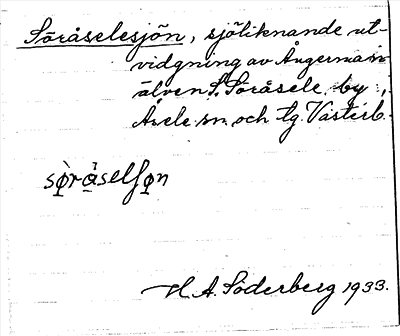 Söråselesjön, sjöliknande ut-
vidgning av Ångerman
älven S. Söråsele by,
Åsele sn. och tg. Västerb.
H. A. Söderberg 1933.